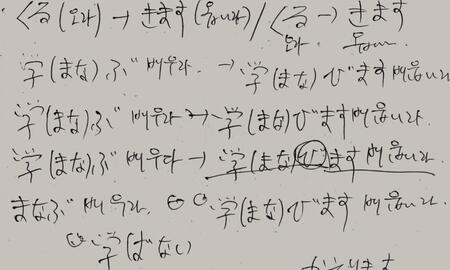 くる(오다) → きます(옵니다) / くる → きます
오다. 옵니다.
学(まな)ぶ 배우다. → 学(まな)びます 배웁니다
学(まな)ぶ 배우다 → 学(まな)びます 배웁니다.
学(まな)ぶ 배우다 → 学(まな)びます 배웁니다.
まなぶ 배우다. 学(まな)びます 배웁니다.
学ばない